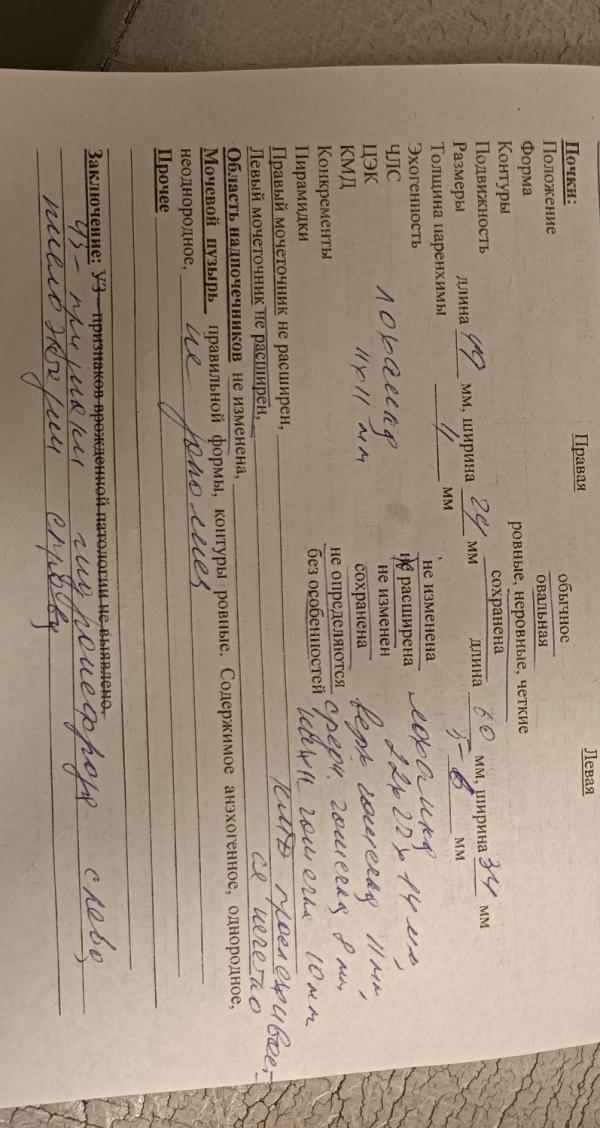 Почки: Правая Левая
Положение обычное
Форма овальная
Контуры ровные, неровные, четкие
Подвижность сохранена
Размеры длина 49 мм, ширина 24 мм длина 60 мм, ширина 34 мм
Толщина паренхимы мм 5-6 мм
Эхогенность не изменена
ЧЛС лоханка не расширена лоханка
11х11 мм 22х22х14 мм,
ЦЭК не изменен верх. 11 мм,
КМД сохранена средн. 8 мм,
Конкременты не определяются 10 мм
Пирамидки без особенностей
КМД прослеживает-
Правый мочеточник не расширен,
ся нечетко
Левый мочеточник не расширен,
Область надпочечников не изменена,
Мочевой пузырь правильной формы, контуры ровные. Содержимое анэхогенное, однородное,
неоднородное, не
Прочее
Заключение: УЗ - признаков врожденной патологии не выявлено.
УЗ - признаки гидронефроза слева,
пиелоэктазии справа